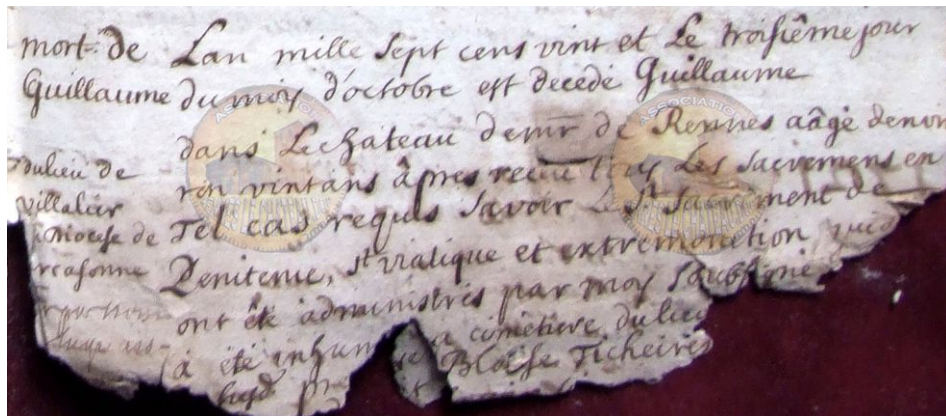 mort. de
Guillaume
du lieu de
villalier
diocese de
rcasonne
Lan mille sept cens vint et Le troisiême jour
du mois d'octobre est decede Guillaume
dans Le chateau de mr de Rennes aâgé denvi
ron vint ans âpres recu tous Les sacremens en
Tel cas requis savoir Le st sacrement de
Penitense, st viatique et extremonction qui
ont été administrés par moy soubsigné
à été inhumé cimetiere du lieu
Blaise Ticheires
ASSOCIATIO
ASSOCIATIO